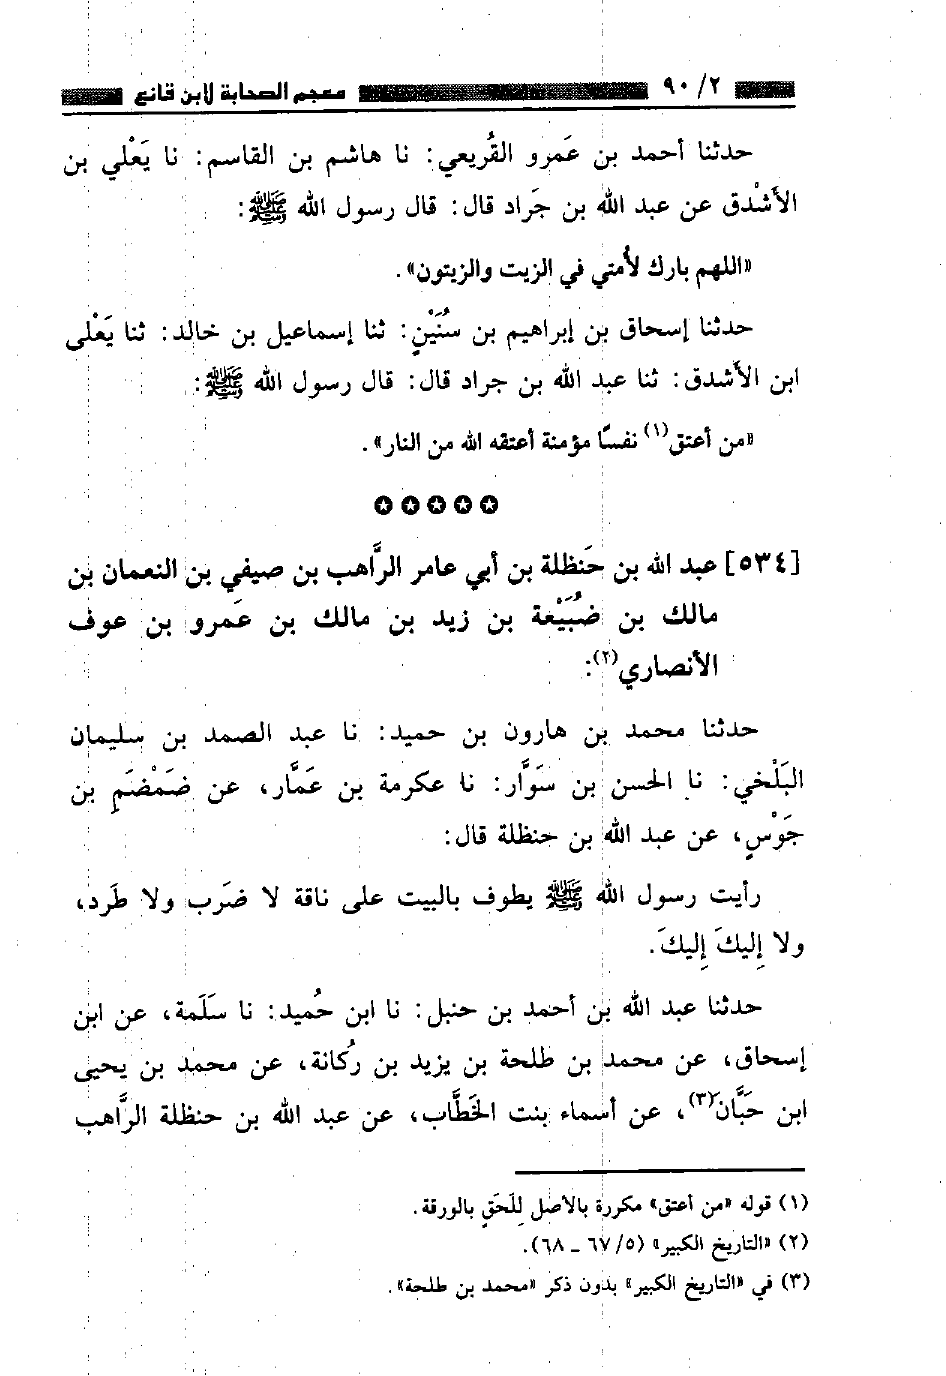 ٩٠/٢ معجم الصحابة لابن قانع
حدثنا أحمد بن عَمرو القُريعي: نا هاشم بن القاسم: نا يَعْلي بن
الأشْدق عن عبد الله بن جَراد قال: قال رسول الله ﷺ:
«اللهم بارك لأُمتي في الزيت والزيتون».
حدثنا إسحاق بن إبراهيم بن سُنَيْنٍ: ثنا إسماعيل بن خالد: ثنا يَعْلى
ابن الأشدق: ثنا عبد الله بن جراد قال: قال رسول الله ﷺ:
«من أعتق(١) نفسًا مؤمنة أعتقه الله من النار».
✪✪✪✪✪
[٥٣٤] عبد الله بن حَنظلة بن أبي عامر الرَّاهب بن صيفي بن النعمان بن
مالك بن ضُبَيْعة بن زيد بن مالك بن عَمرو بن عوف
الأنصاري(٢):
حدثنا محمد بن هارون بن حميد: نا عبد الصمد بن سليمان
البَلْخي: نا الحسن بن سَوَّار: نا عكرمة بن عَمَّار، عن ضَمْضَمِ بن
جَوْسٍ، عن عبد الله بن حنظلة قال:
رأيت رسول الله ﷺ يطوف بالبيت على ناقة لا ضَرب ولا طَرد،
ولا إِليكَ إِليكَ.
حدثنا عبد الله بن أحمد بن حنبل: نا ابن حُميد: نا سَلَمة، عن ابن
إسحاق، عن محمد بن طلحة بن يزيد بن رُكانة، عن محمد بن يحيى
ابن حَبَّان(٣)، عن أسماء بنت الخطَّاب، عن عبد الله بن حنظلة الرَّاهب
(١) قوله «من أعتق» مكررة بالأصل لِلَحَقٍ بالورقة.
(٢) «التاريخ الكبير» (٥/ ٦٧ ــ ٦٨).
(٣) في «التاريخ الكبير» بدون ذكر «محمد بن طلحة».